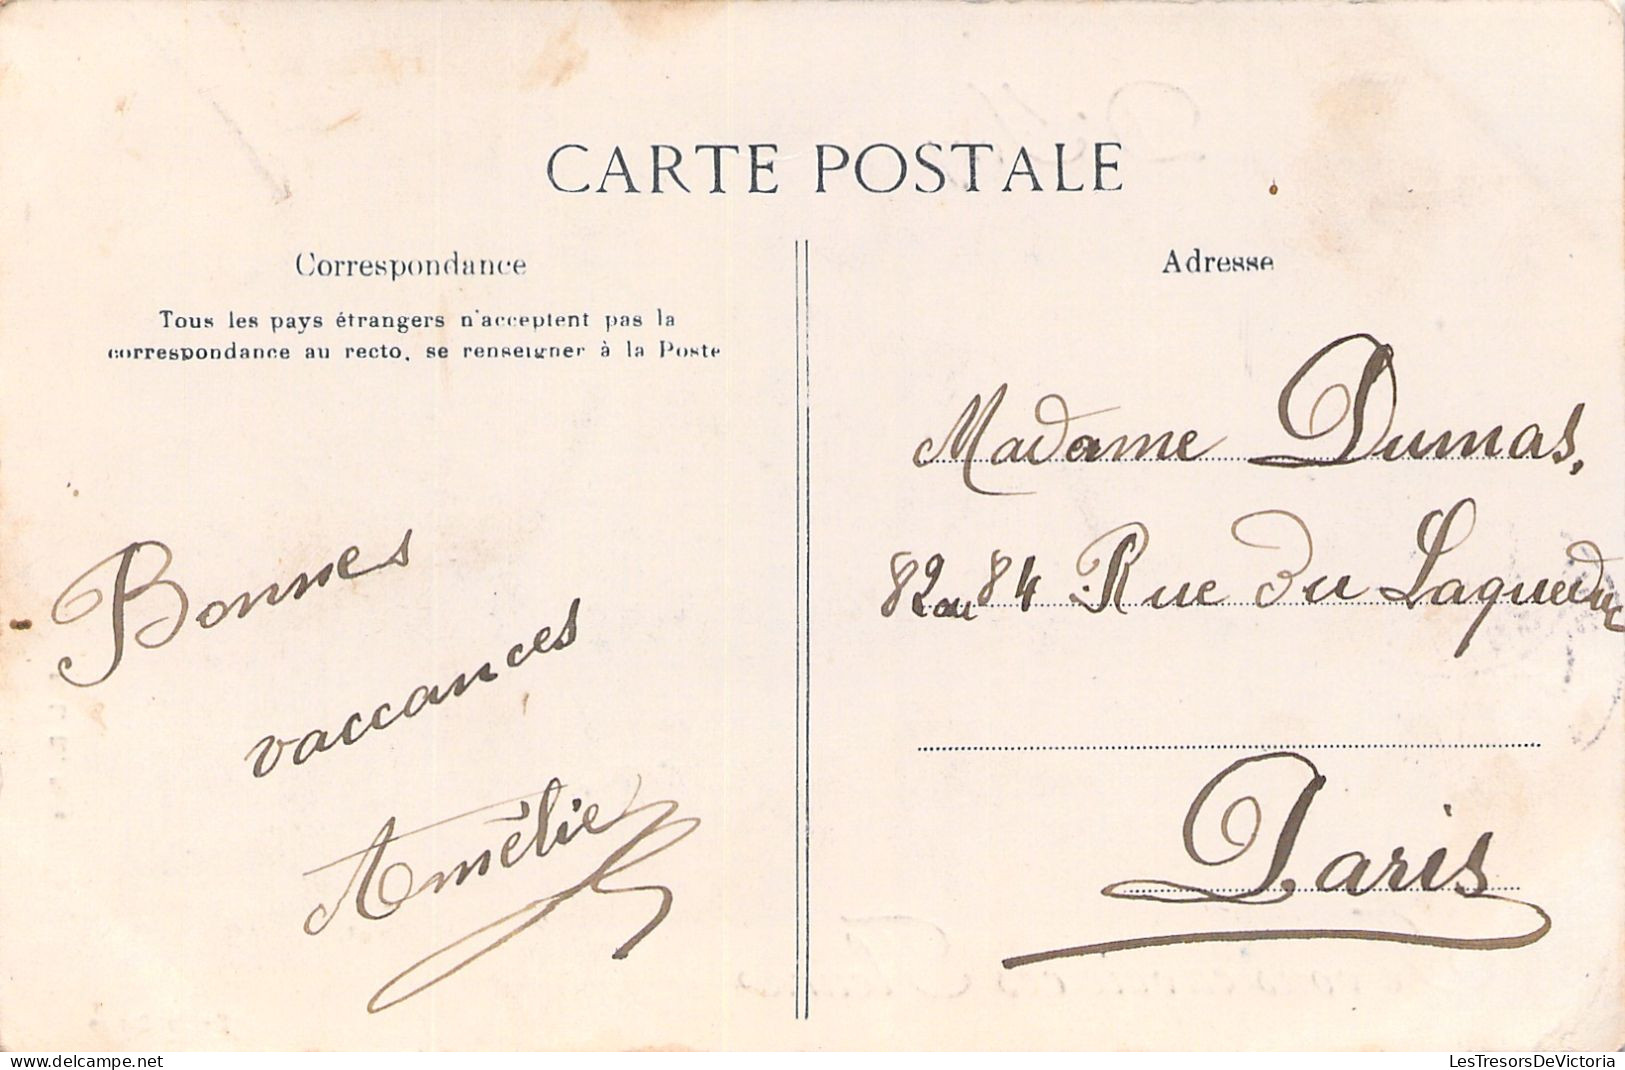 CARTE POSTALE
Correspondance
Tous les pays étrangers n'acceptent pas la
correspondance au recto, se renseigner à la Poste
Bonnes
vaccances
Amélie
Adresse
Madame Dumas,
82 au 84 Rue du Laqueduc
Paris
LesTresorsDeVictoria
delcampe.net